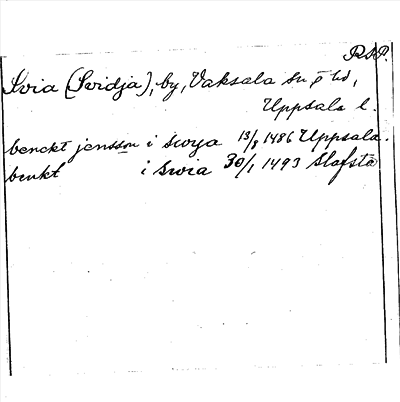 RSP.
Svia (Svidja), by, Vaksala sn o hd,
Uppsala l.
benckt jensson i swya 13/8 1486 Uppsala.
benkt i swia 30/1 1493 Slafsta